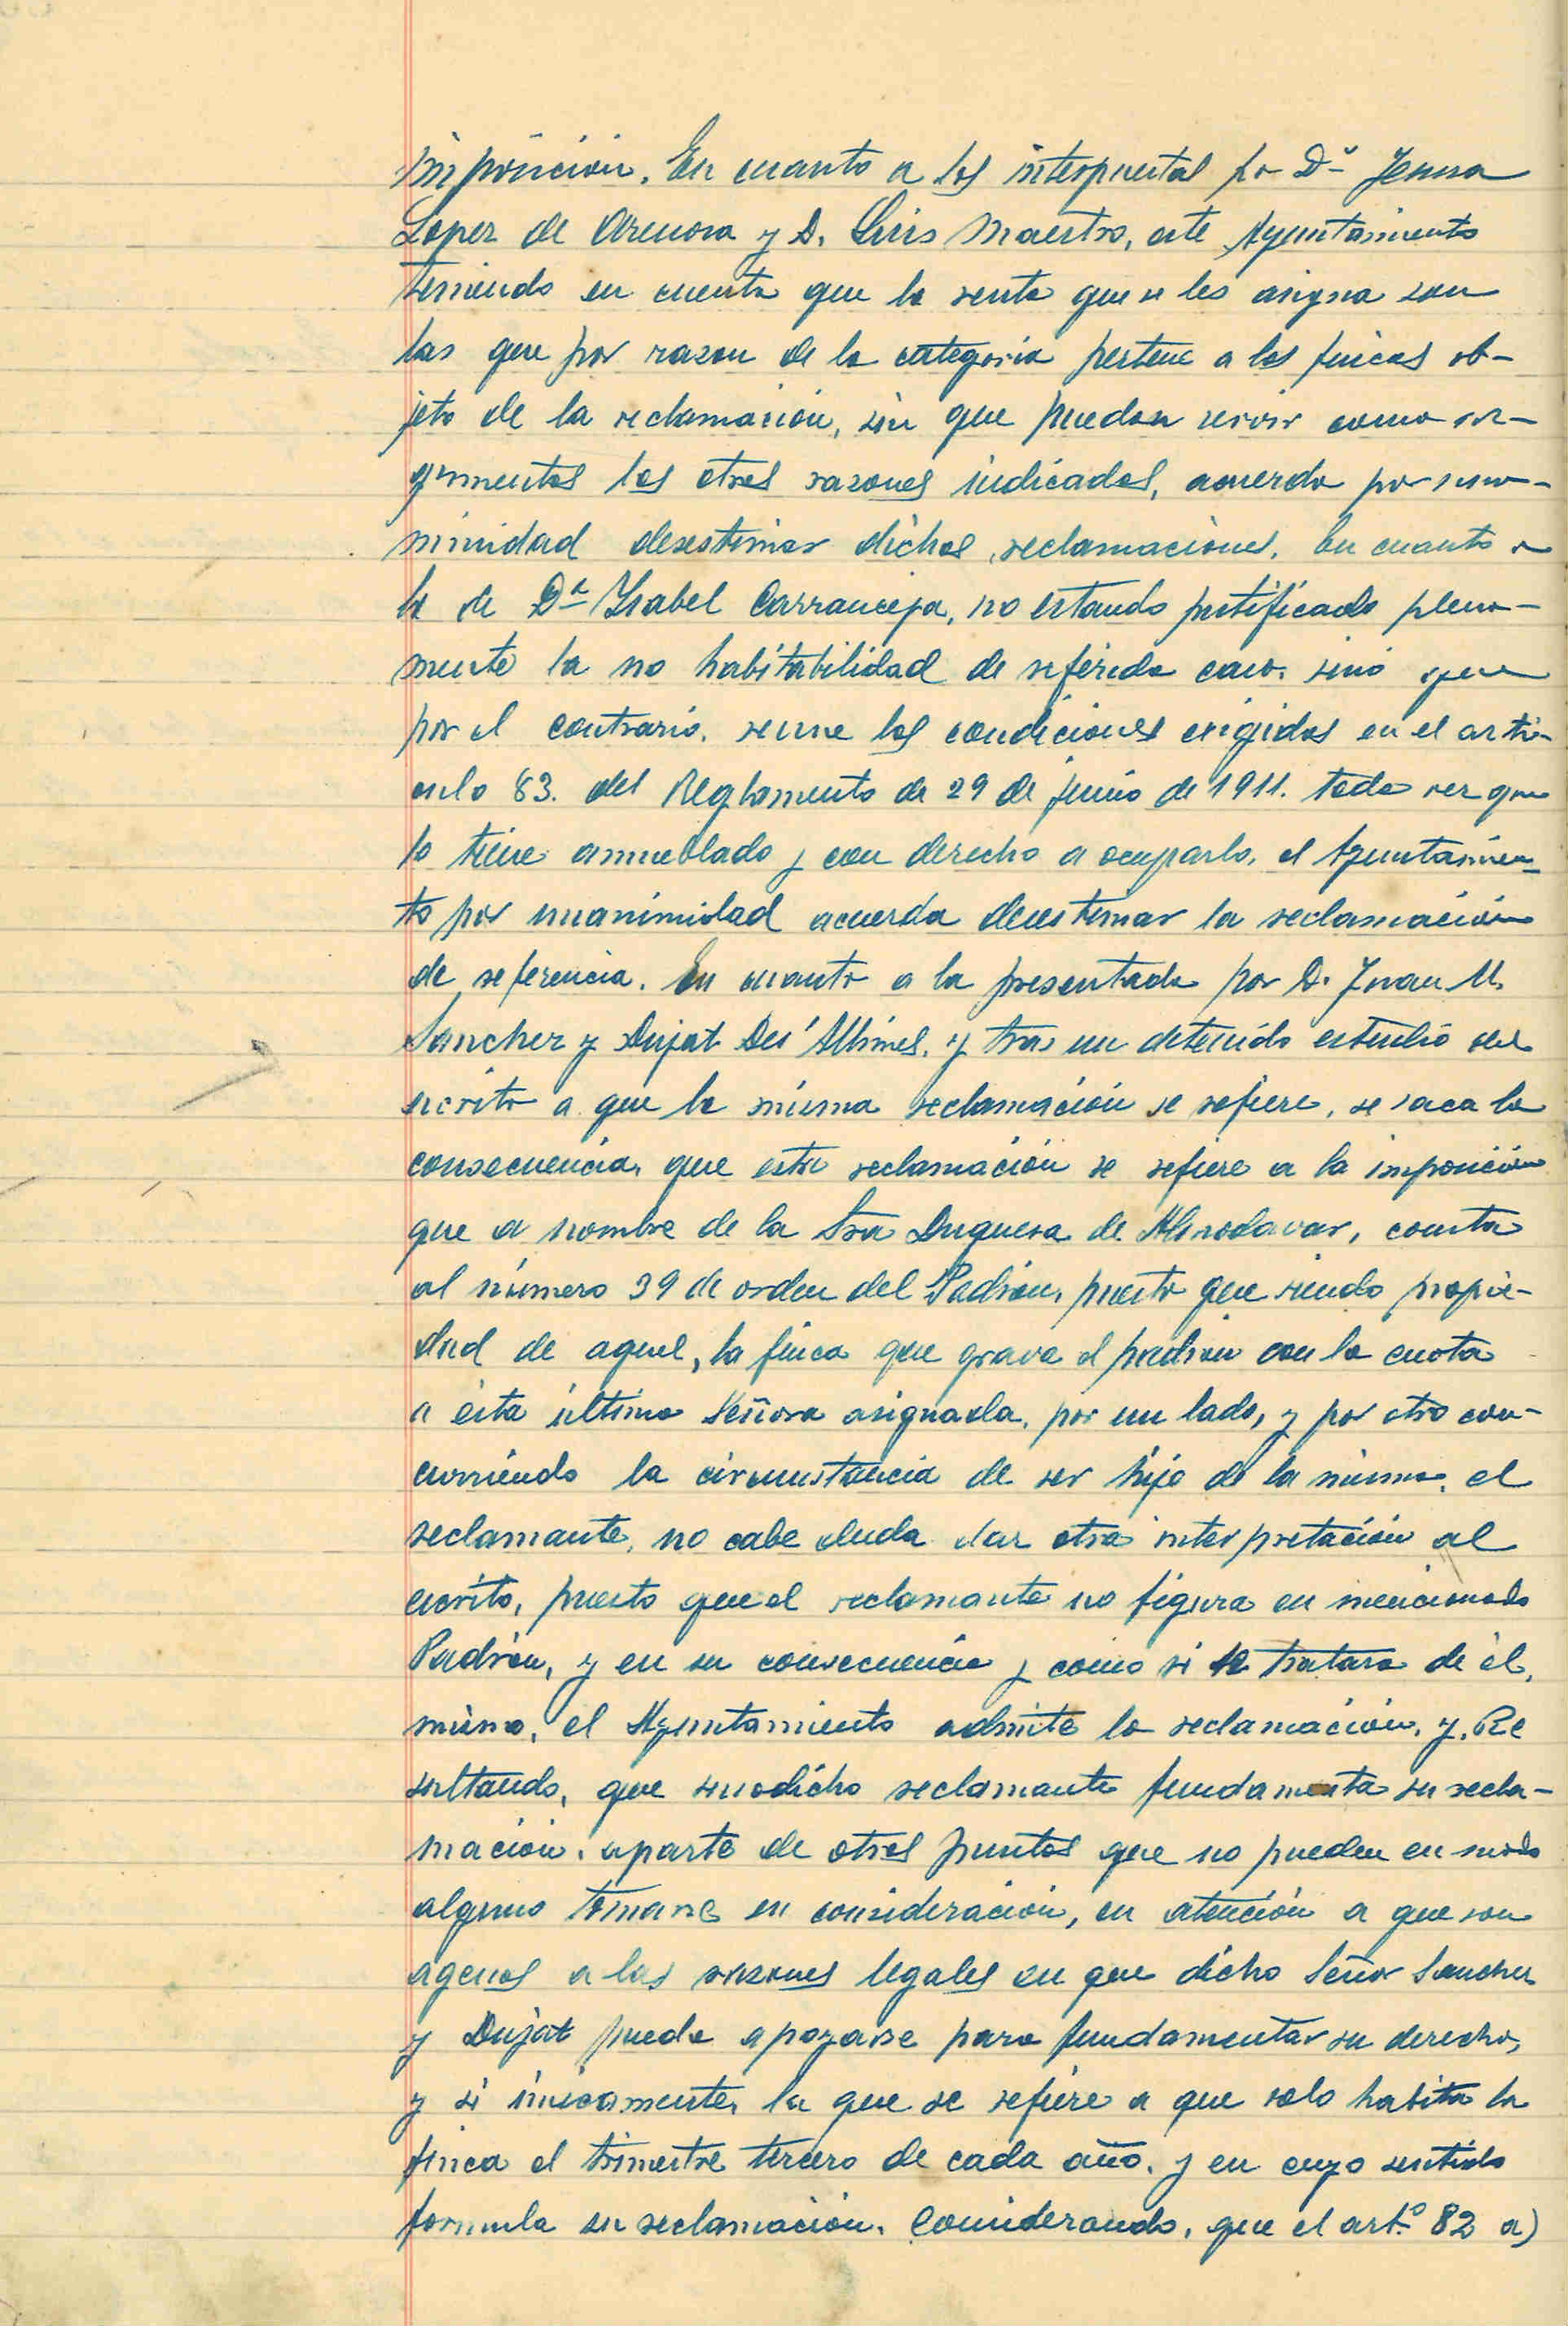 imposición. En cuanto a los interpuestas por Dª Jesusa
Lopez de Arenosa y D. Luis Maestro, este Ayuntamiento
teniendo en cuenta que la renta que se les asigna son
las que por razon de la categoria pertene a las fincas ob-
jeto de la reclamación, sin que puedan servir como ar-
gumentos las otras razones indicadas, acuerda por una-
nimidad desestimar dichas reclamaciones. En cuanto a
la de Dª Ysabel Carranceja, no estando justificado plena-
mente la no habitabilidad de referida casa, sinó que
por el contrario, reune las condiciones exigidas en el arti-
culo 83. del Reglamento de 29 de junio de 1911. toda vez que
lo tiene amueblado y con derecho a ocuparlo, el Ayuntamien-
to por unanimidad acuerda desestimar la reclamación
de referencia. En cuanto a la presentada por D. Juan M.
Sanchez y Dujat Des' Allimes, y tras un detenido estudio del
escrito a que la misma reclamación se refiere, se saca la
consecuencia, que esta reclamación se refiere a la imposición
que a nombre de la Sra Duquesa de Almodovar, consta
al número 39 de orden del Padrón, puesto que siendo propie-
dad de aquel, la finca que grava el padrón con la cuota
a esta última Señora asignada, por un lado, y por otro con-
curriendo la circunstancia de ser hijo de la misma, el
reclamante, no cabe duda dar otra interpretación al
escrito, puesto que el reclamante no figura en mencionado
Padrón, y en su consecuencia y como si se tratara de él
mismo, el Ayuntamiento admite la reclamación, y, Re
sultando, que susodicho reclamante fundamenta su recla-
mación, aparte de otros puntos que no pueden en modo
alguno tomarse en consideración, en atención a que son
agenos a las razones legales en que dicho Señor Sanchez
y Dujat puede apoyarse para fundamentar su derecho,
y si únicamente, la que se refiere a que solo habita la
finca el trimestre tercero de cada año, y en cuyo sentido
formula su reclamación. Considerando, que el art.º 82 a)